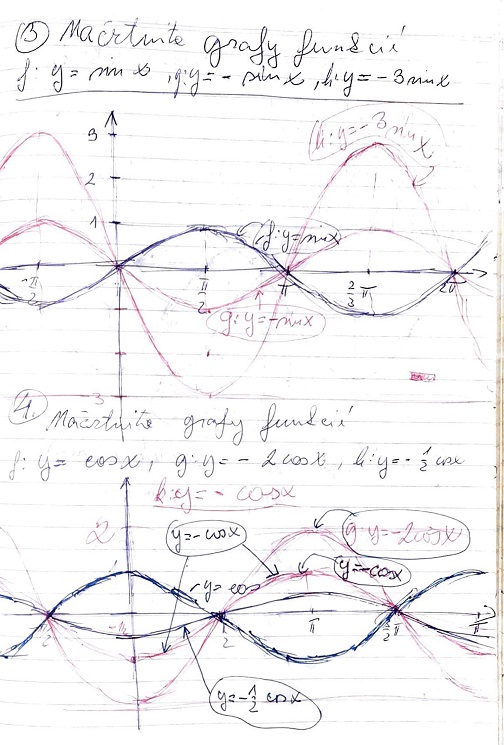 ③ Načrtnite grafy funkcií
f: y = sin x, g: y = - sin x, h: y = -3 sin x
3
h: y = -3 sin x
2
1
f: y = sin x
-π/2
π/2
π
2/3
2π
g: y = -sin x
3
4. Načrtnite grafy funkcií
f: y = cos x, g: y = - 2 cos x, h: y = - 1/2 cos x
k: y = - cos x
2
y = -cos x
g: y = -2cos x
y = -cos x
y = cos
2
2
π
3/2 π
π
y = -1/2 cos x